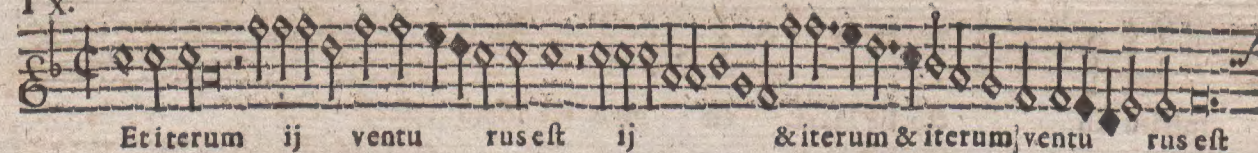 Et iterum ij ventu rus eſt ij & iterum & iterum ventu rus eſt